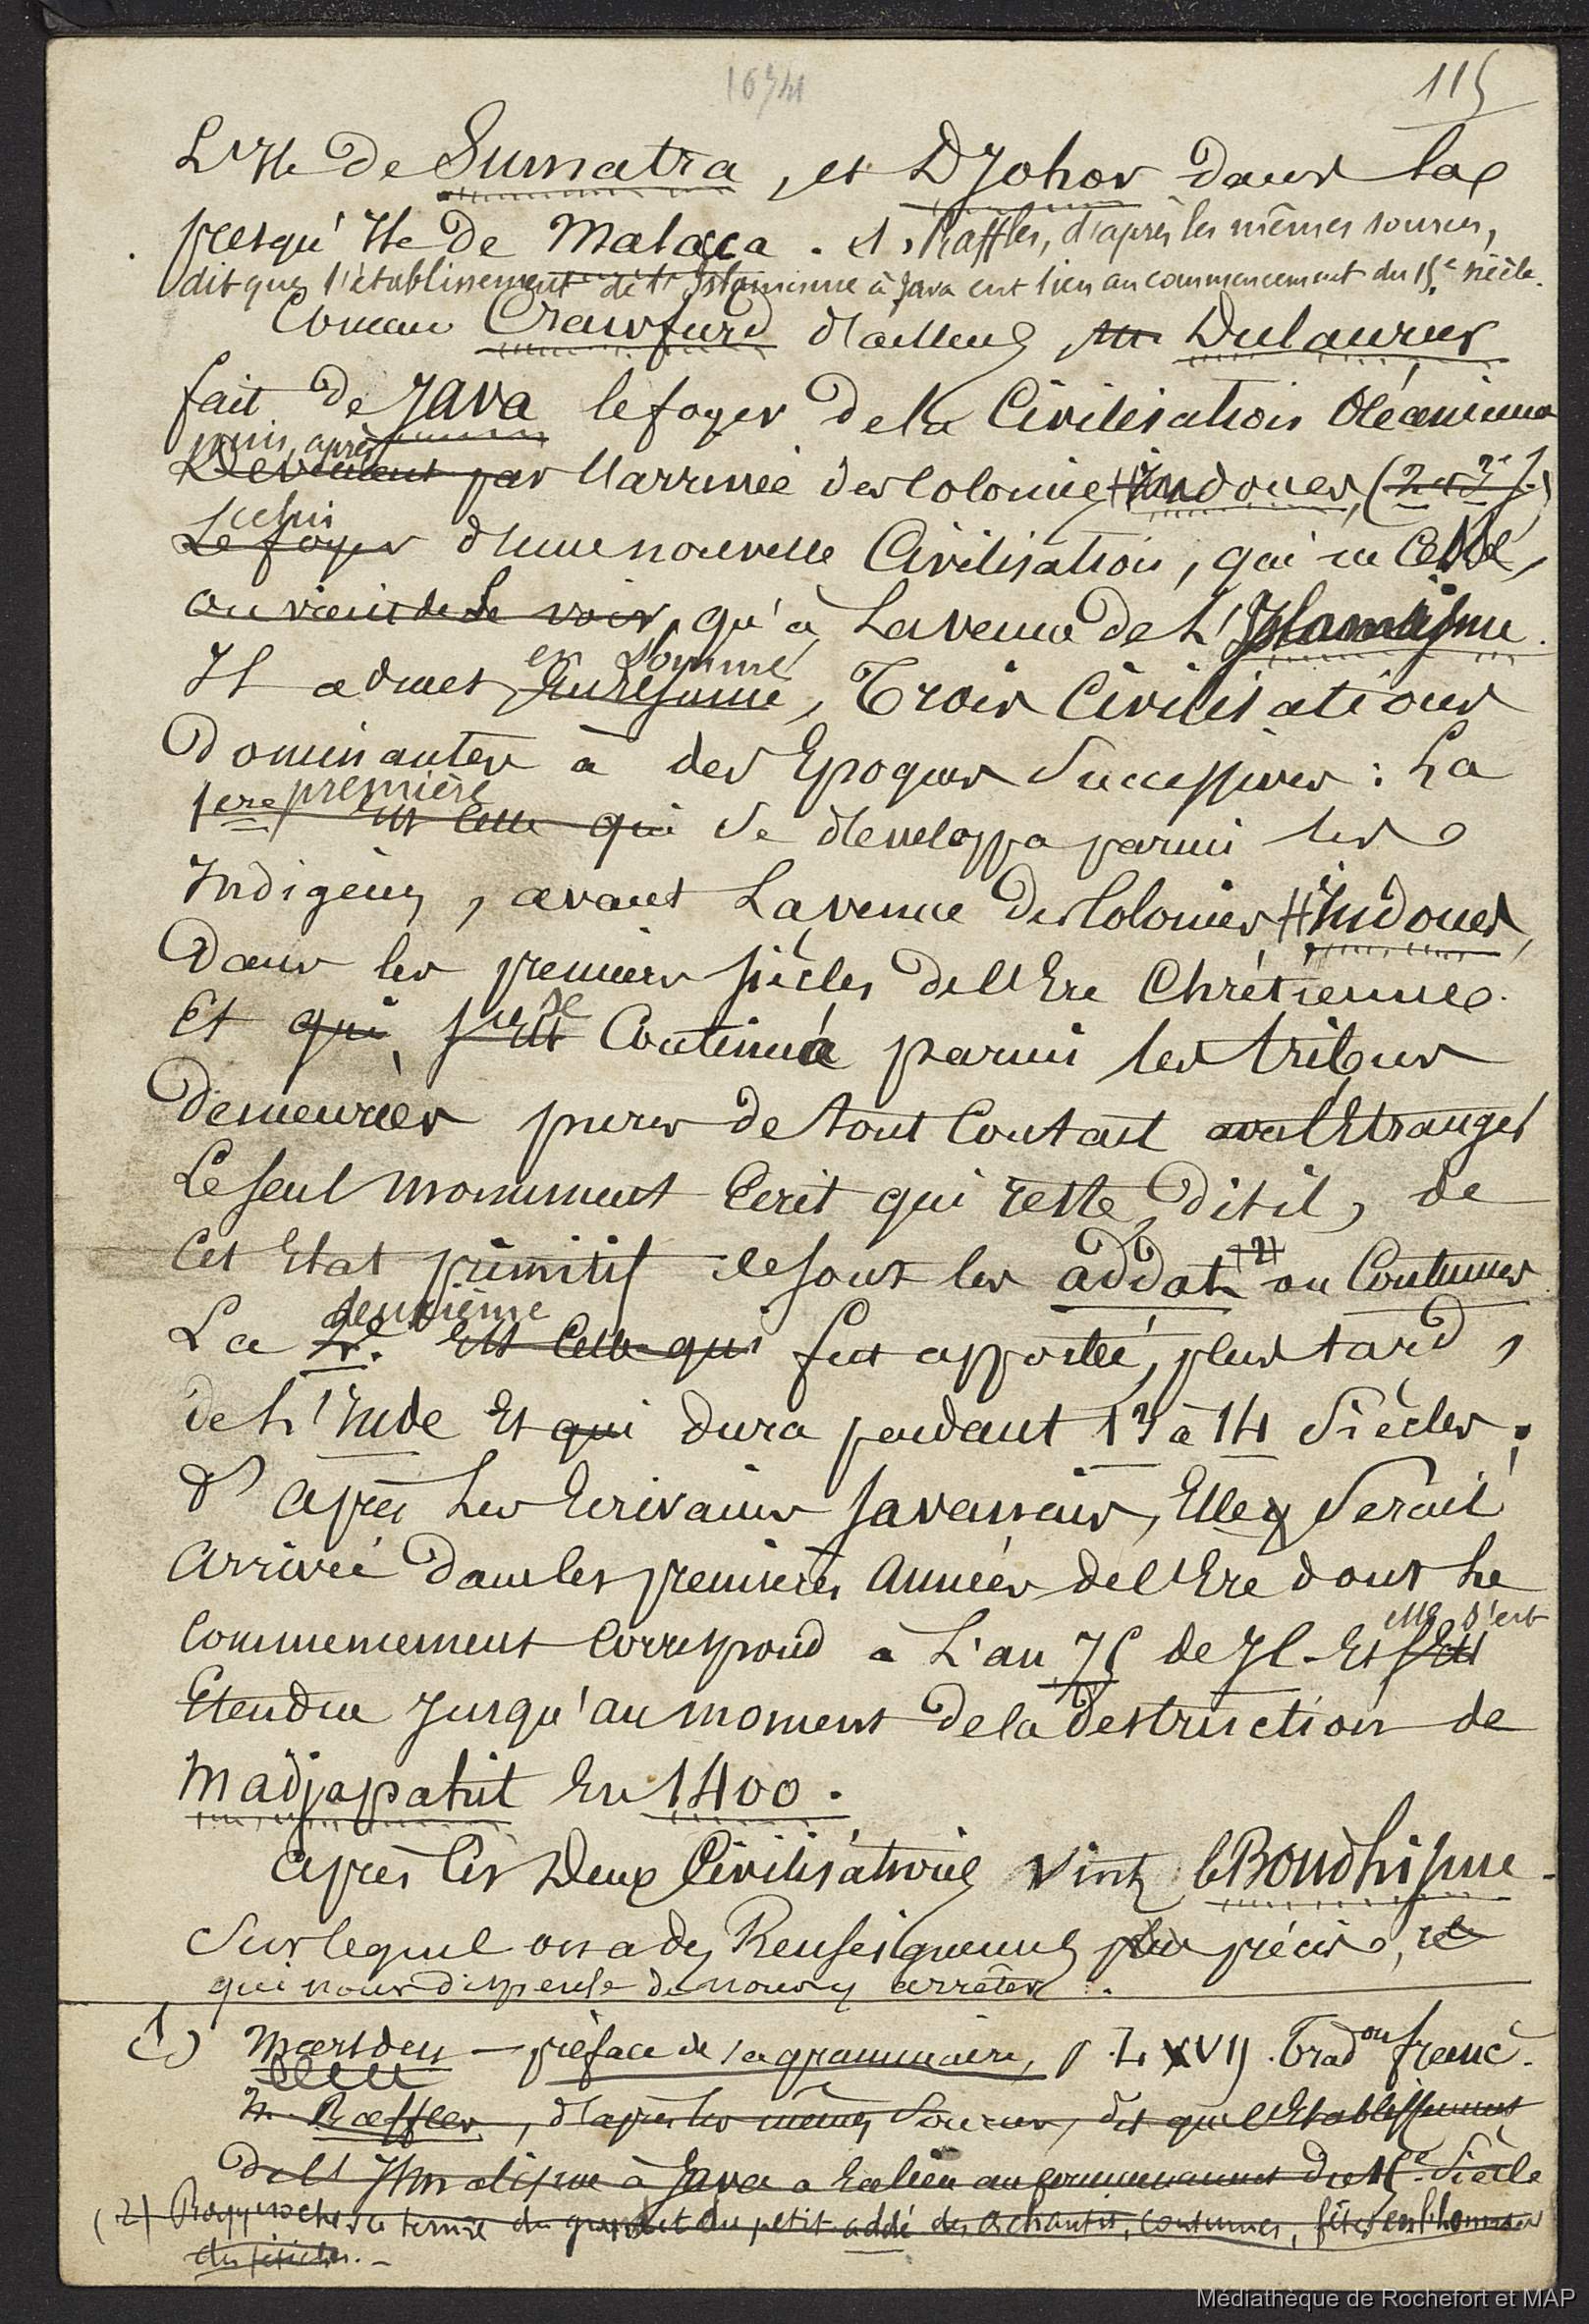 1634
115
L'Ile de Sumatra, et Djohor dans la
presqu'Ile de Malaca. et, Raffles, d'après les mêmes sources,
dit que l'établissement de l'Islamisme à Java eut lieu au commencement du 15e siècle.
Comme Crawfurd d'ailleurs, Mr Dulaurier
fait de Java le foyer de la Civilisation Océanienne
puis, après
Devenant par l'arrivée des Colonies Hindoues, (2 et 3e S.)
celui
Le foyer d'une nouvelle Civilisation, qui ne cessé,
on vient de le voir, qu'à la venue de l'Islamisme.
en somme
Il admet, en résumé, Trois Civilisations
Dominantes à des Epoques Successives : La
première
1ere est Celle qui se développa parmi les
Indigènes, avant la venue des Colonies Hindoues,
Dans les premiers siècles de l'Ere Chrétienne.
se
Et qui s'est Continua parmi les tribus
Demeurées pures de tout Contact avec l'Etranger
Le seul monument Ecrit qui reste, dit il, de
Cet Etat primitif ce sont les addat (2) ou Coutumes
deuxième
La 2e. est Celle qui fut apportée, plus tard,
de l'Inde Et qui dura pendant 13 à 14 Siècles;
D'après les Ecrivains Javanais, Elle Serait
Arrivée dans les premières Années de l'Ere dont le
elle s'est
Commencement Correspond à l'an 75 de J C. Et s'est
Etendue Jusqu'au moment de la destruction de
Madjapahit En 1400.
Après les Deux Civilisations vint le Boudhisme
Sur lequel on a des Renseignements plus précis, et
qui nous dispense de nous y arrêter.
(1) Marsden — préface de sa grammaire, p. LXVII. Tradon franc.
M. Raffles, d'après les mêmes Sources, dit que l'Etablissement
de l'Islamisme à Java a Eu lieu au Commencement du 15e Siècle
(2) Rapprochez ce terme du grand et du petit addé des Achantis, coutumes, fêtes en l'honneur